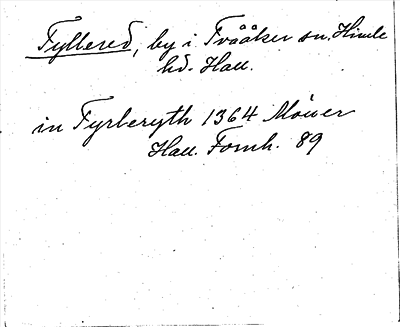 Fyllered, by i Tvååker sn. Himle
hd. Hall.
in Fyrberyth 1364 Möwer
Hall. Fornh. 89